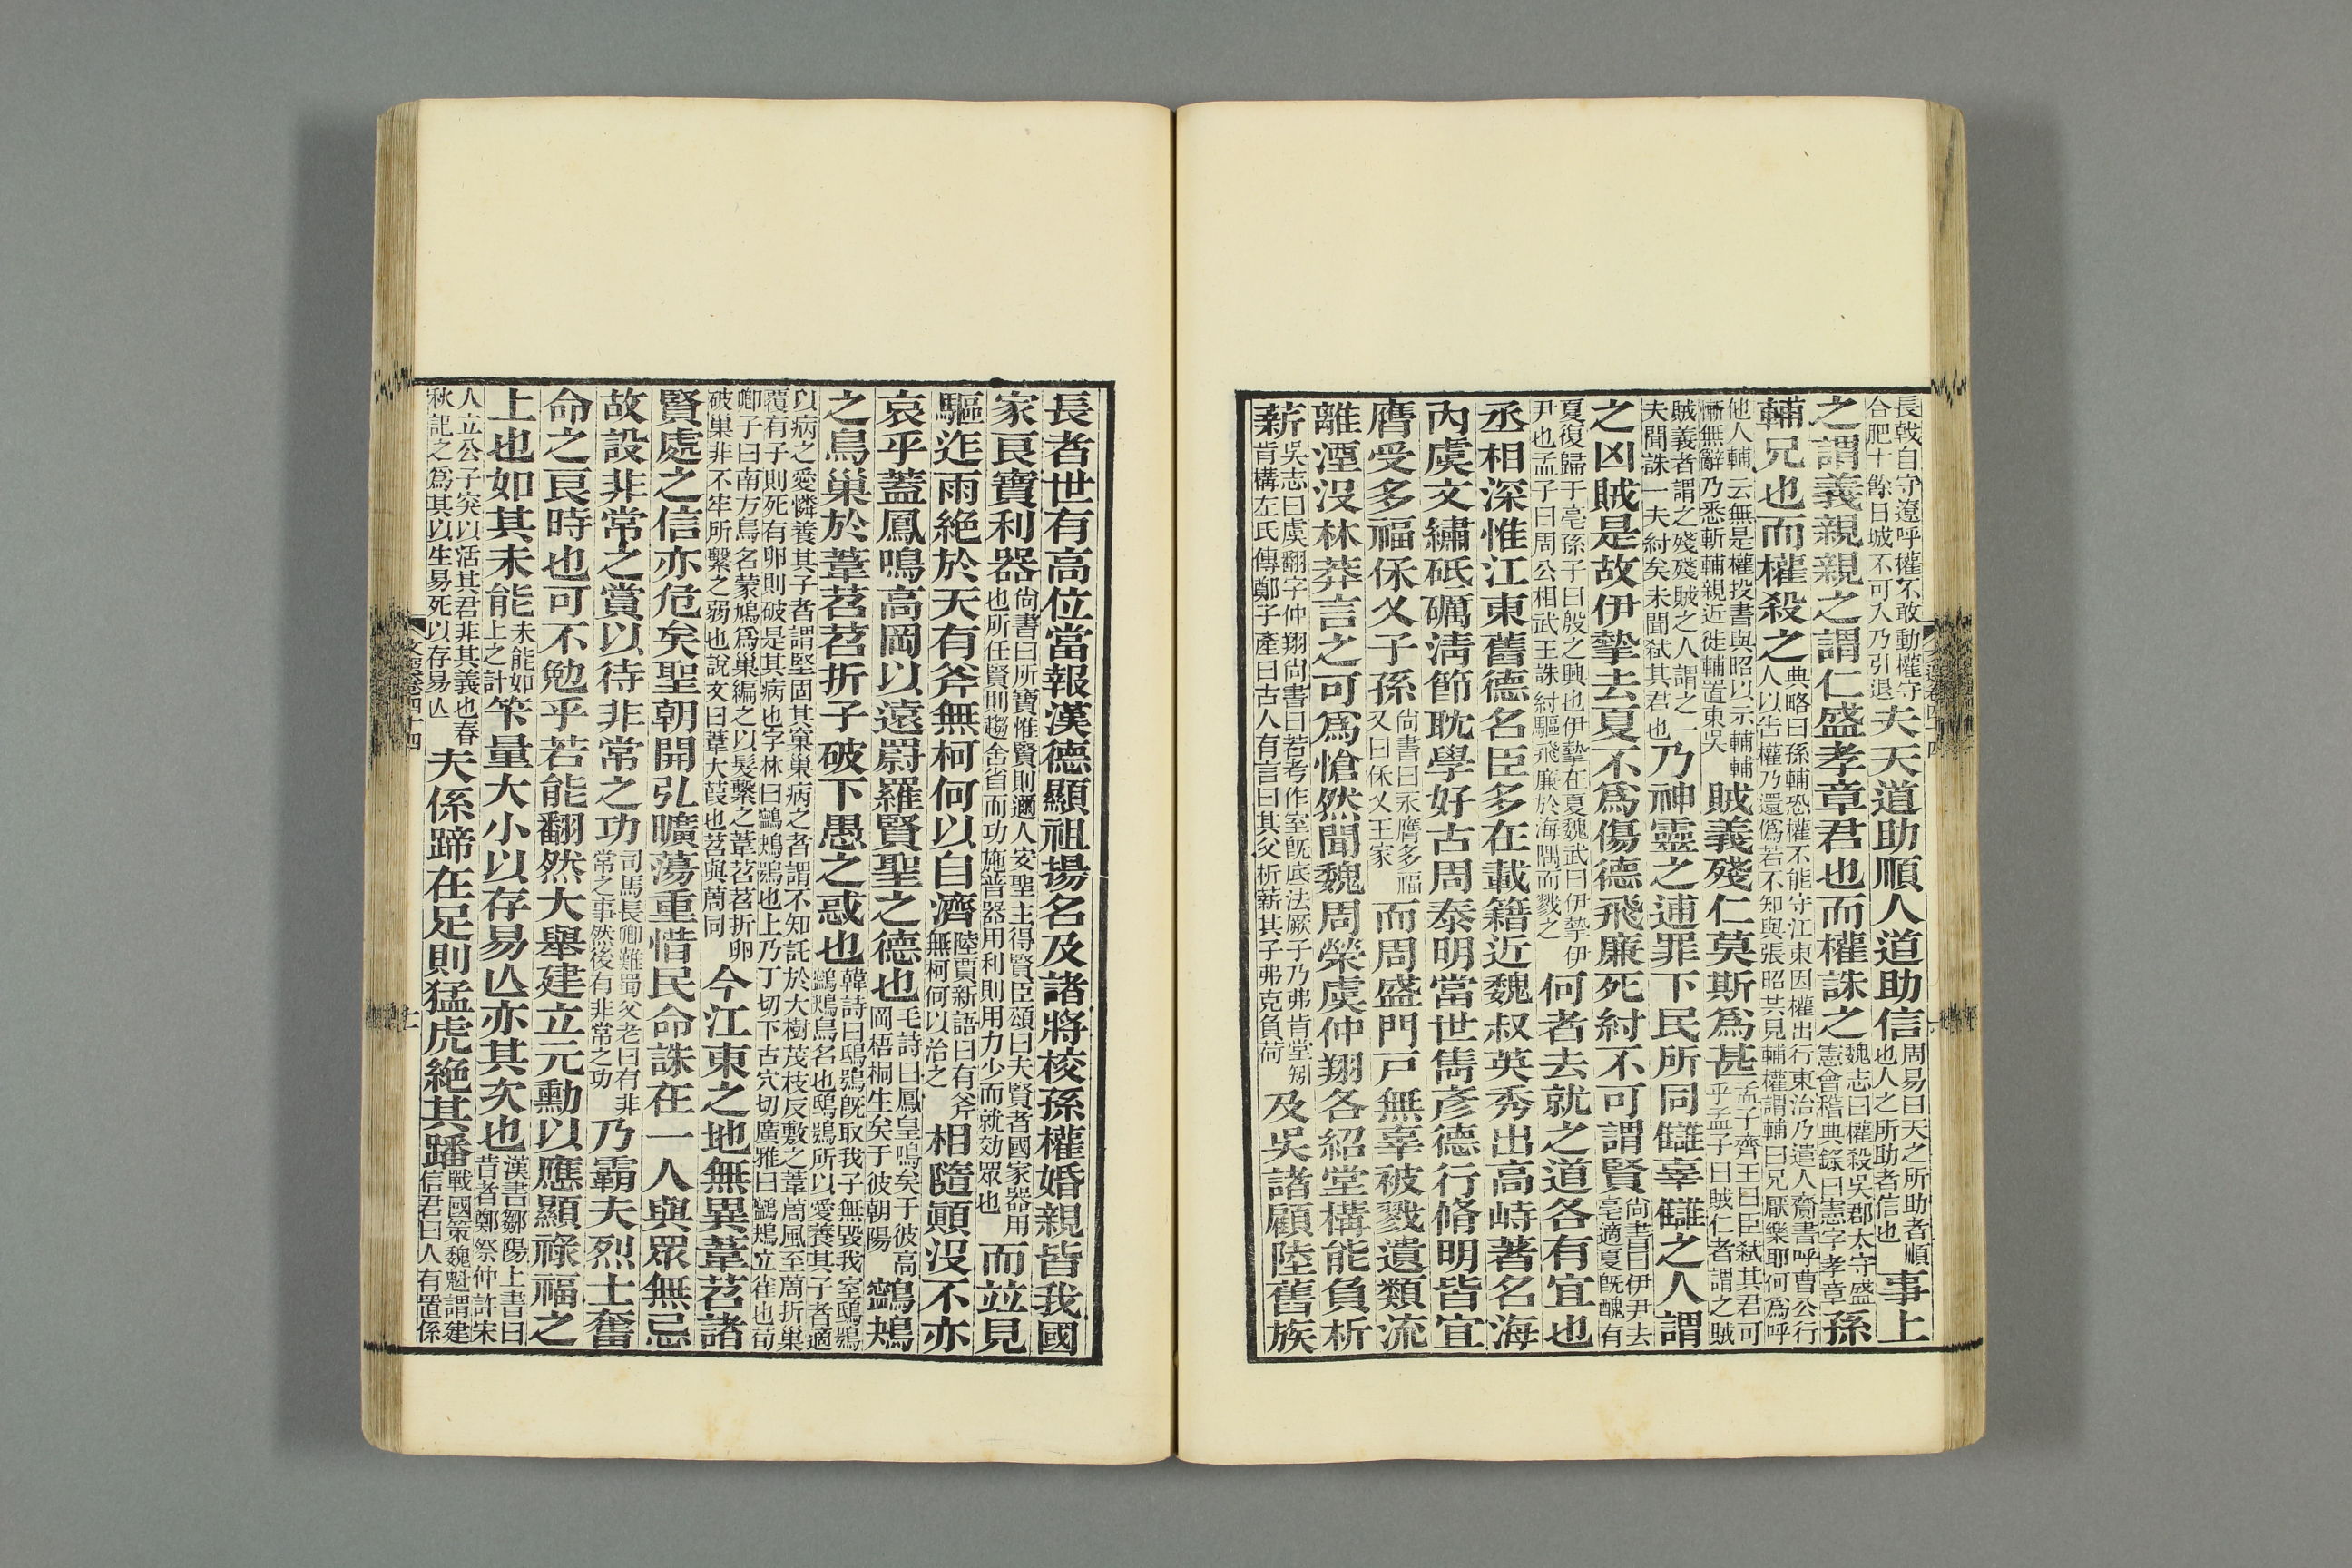 長戟自守遼呼權不敢動權守
合肥十餘日城不可入乃引退
夫天道助順人道助信
周易曰天之所助者順
也人之所助者信也
事上
之謂義親親之謂仁盛孝章君也而權誅之
魏志曰權殺吳郡太守盛
憲會稽典錄曰憲字孝章
孫
輔兄也而權殺之
典略曰孫輔恐權不能守江東因權出行東治乃遣人齎書呼曹公行
人以告權乃還偽若不知與張昭共見輔權謂輔曰兄厭樂耶何為呼
他人輔云無是權投書與昭以示輔輔
慚無辭乃悉斬輔親近徙輔置東吳
賊義殘仁莫斯為甚
孟子齊王曰臣弒其君可
乎孟子曰賊仁者謂之賊
賊義者謂之殘殘賊之人謂之一
夫聞誅一夫紂矣未聞弒其君也
乃神靈之逋罪下民所同讎辜讎之人謂
之凶賊是故伊摯去夏不為傷德飛廉死紂不可謂賢
尚書曰伊尹去
亳適夏既醜有
夏復歸于亳孫子曰殷之興也伊摯在夏魏武曰伊摯伊
尹也孟子曰周公相武王誅紂驅飛廉於海隅而戮之
何者去就之道各有宜也
丞相深惟江東舊德名臣多在載籍近魏叔英秀出高峙著名海
內虞文繡砥礪清節耽學好古周泰明當世雋彥德行脩明皆宜
膺受多福保乂子孫
尚書曰永膺多福
又曰保乂王家
而周盛門戶無辜被戮遺類流
離湮沒林莽言之可為愴然聞魏周榮虞仲翔各紹堂構能負析
薪
吳志曰虞翻字仲翔尚書曰若考作室既底法厥子乃弗肯堂矧
肯構左氏傳鄭子產曰古人有言曰其父析薪其子弗克負荷
及吳諸顧陸舊族
長者世有高位當報漢德顯祖揚名及諸將校孫權婚親皆我國
家良寶利器
尚書曰所寶惟賢則邇人安聖主得賢臣頌曰夫賢者國家器用
也所任賢則趨舍省而功施普器用利則用力少而就效眾也
而竝見
驅迮雨絕於天有斧無柯何以自濟
陸賈新語曰有斧
無柯何以治之
相隨顚沒不亦
哀乎蓋鳳鳴高岡以遠罻羅賢聖之德也
毛詩曰鳳皇鳴矣于彼高
岡梧桐生矣于彼朝陽
鸋鴂
之鳥巢於葦苕苕折子破下愚之惑也
韓詩曰鴟鴞既取我子無毀我室鴟鴞
鸋鴂鳥名也鴟鴞所以愛養其子者適
以病之愛憐養其子者謂堅固其窠巢病之者謂不知託於大樹茂枝反敷之葦𦼮風至𦼮折巢
覆有子則死有卵則破是其病也字林曰鸋鴂鴞也上乃丁切下古穴切廣雅曰鸋鴂立雀也荀
卿子曰南方鳥名蒙鳩為巢編之以髮繫之葦苕苕折卵
破巢非不牢所繫之弱也說文曰葦大葭也苕與𦼮同
今江東之地無異葦苕諸
賢處之信亦危矣聖朝開弘曠蕩重惜民命誅在一人與眾無忌
故設非常之賞以待非常之功
司馬長卿難蜀父老曰有非
常之事然後有非常之功
乃霸夫烈士奮
命之良時也可不勉乎若能翻然大舉建立元勳以應顯祿福之
上也如其未能
未能如
上之計
筭量大小以存易亾亦其次也
漢書鄒陽上書曰
昔者鄭祭仲許宋
人立公子突以活其君非其義也春
秋記之為其以生易死以存易亾
夫係蹄在足則猛虎絕其蹯
戰國策魏魁謂建
信君曰人有置係